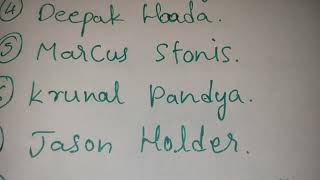 ④ Deepak Hooda.
⑤ Marcus Stonis.
Krunal Pandya.
Jason Holder.